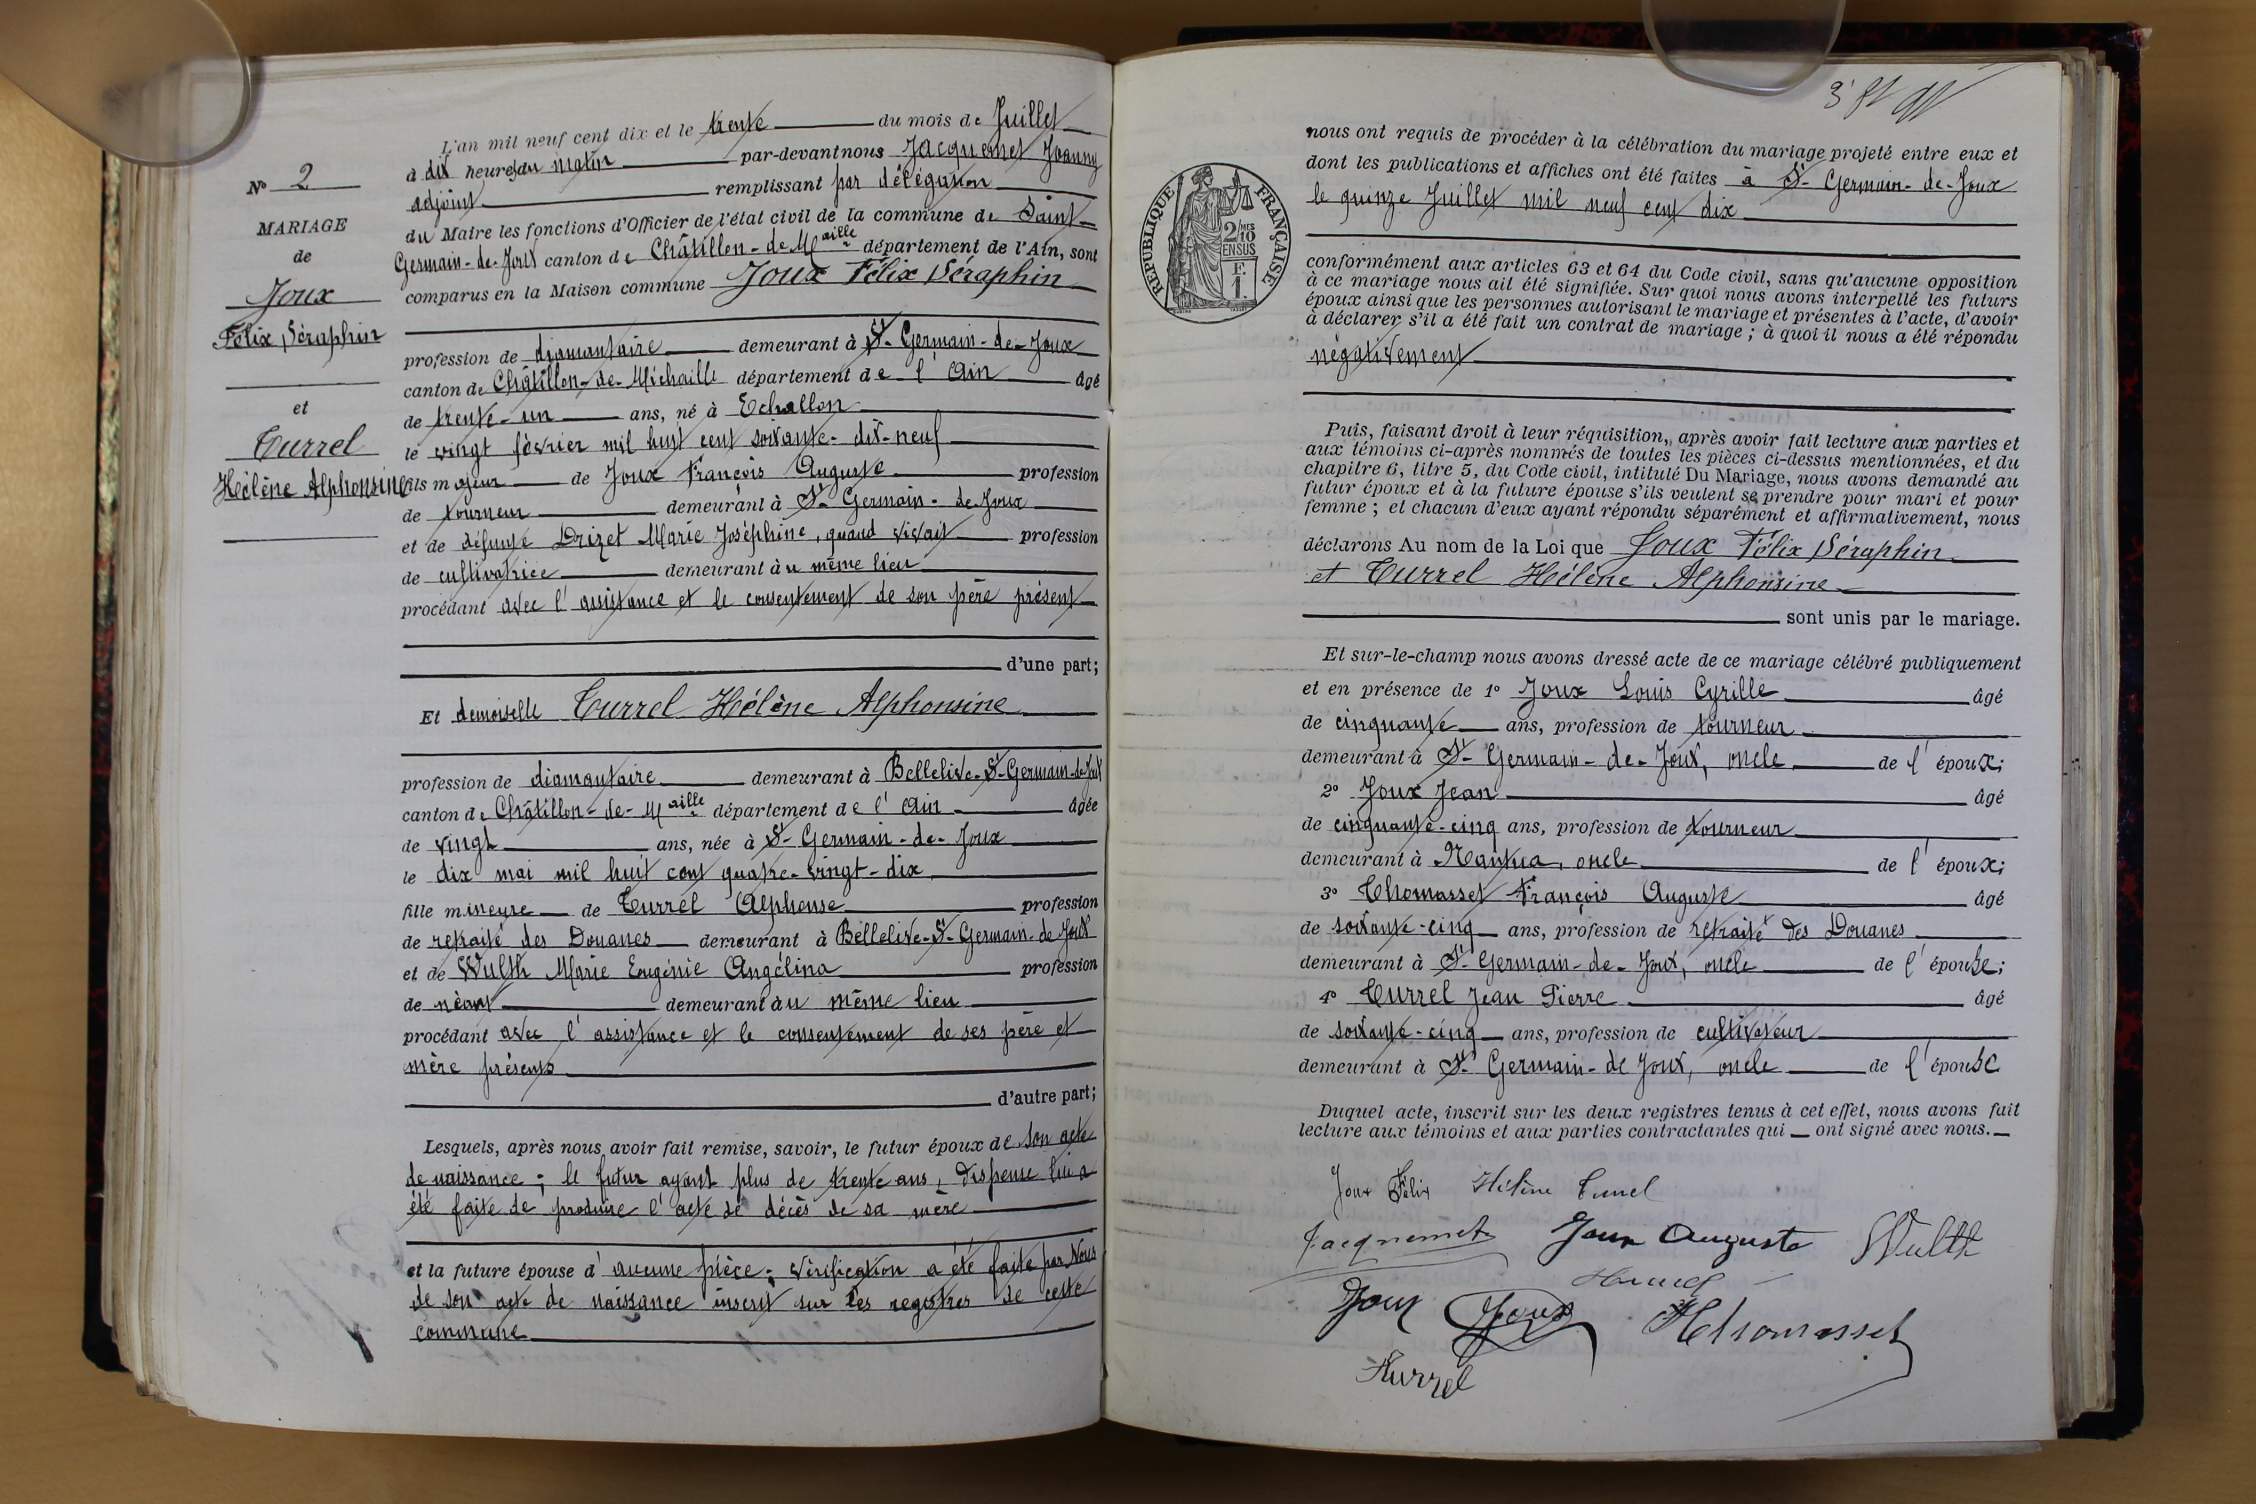 N° 2
MARIAGE
de
Joux
Félix Séraphin
et
Turrel
Hélène Alphonsine
L'an mil neuf cent dix et le trente du mois de Juillet
à dix heures du matin par-devant nous Jacquemet Joanny
adjoint remplissant par délégation
du Maire les fonctions d'Officier de l'état civil de la commune de Saint-
Germain-de-Joux canton de Châtillon-de-Maille département de l'Ain, sont
comparus en la Maison commune Joux Félix Séraphin
profession de diamantaire demeurant à St-Germain-de-Joux
canton de Châtillon-de-Michaille département de l'Ain âgé
de trente-un ans, né à Echallon
le vingt février mil huit cent soixante-dix-neuf
fils majeur de Joux François Auguste profession
de tourneur demeurant à St-Germain-de-Joux
et de défunte Drizet Marie Joséphine, quand vivait profession
de cultivatrice demeurant au même lieu
procédant avec l'assistance et le consentement de son père présent
d'une part;
Et demoiselle Turrel Hélène Alphonsine
profession de diamantaire demeurant à Bellelive-St-Germain-de-Joux
canton de Châtillon-de-Maille département de l'Ain âgée
de vingt ans, née à St-Germain-de-Joux
le dix mai mil huit cent quatre-vingt-dix
fille mineure de Turrel Alphonse profession
de retraité des Douanes demeurant à Bellelive-St-Germain-de-Joux
et de Wulth Marie Eugénie Angélina profession
de néant demeurant au même lieu
procédant avec l'assistance et le consentement de ses père et
mère présents
d'autre part;
Lesquels, après nous avoir fait remise, savoir, le futur époux de son acte
de naissance; le futur ayant plus de trente ans, dispense lui a
été faite de produire l'acte de décès de sa mère
et la future épouse d'aucune pièce; vérification a été faite par Nous
de son acte de naissance inscrit sur les registres de cette
commune
RÉPUBLIQUE FRANÇAISE
2 MES
10
EN SUS
F.
1.
nous ont requis de procéder à la célébration du mariage projeté entre eux et
dont les publications et affiches ont été faites à St-Germain-de-Joux
le quinze Juillet mil neuf cent dix
conformément aux articles 63 et 64 du Code civil, sans qu'aucune opposition
à ce mariage nous ait été signifiée. Sur quoi nous avons interpellé les futurs
époux ainsi que les personnes autorisant le mariage et présentes à l'acte, d'avoir
à déclarer s'il a été fait un contrat de mariage; à quoi il nous a été répondu
négativement
Puis, faisant droit à leur réquisition, après avoir fait lecture aux parties et
aux témoins ci-après nommés de toutes les pièces ci-dessus mentionnées, et du
chapitre 6, titre 5, du Code civil, intitulé Du Mariage, nous avons demandé au
futur époux et à la future épouse s'ils veulent se prendre pour mari et pour
femme; et chacun d'eux ayant répondu séparément et affirmativement, nous
déclarons Au nom de la Loi que Joux Félix Séraphin
et Turrel Hélène Alphonsine
sont unis par le mariage.
Et sur-le-champ nous avons dressé acte de ce mariage célébré publiquement
et en présence de 1° Joux Louis Cyrille âgé
de cinquante ans, profession de tourneur
demeurant à St-Germain-de-Joux, oncle de l'époux;
2° Joux Jean âgé
de cinquante-cinq ans, profession de tourneur
demeurant à Nantua, oncle de l'époux;
3° Thomasset François Auguste âgé
de soixante-cinq ans, profession de retraité des Douanes
demeurant à St-Germain-de-Joux, oncle de l'épouse;
4° Turrel Jean Pierre âgé
de soixante-cinq ans, profession de cultivateur
demeurant à St-Germain-de-Joux, oncle de l'épouse
Duquel acte, inscrit sur les deux registres tenus à cet effet, nous avons fait
lecture aux témoins et aux parties contractantes qui ont signé avec nous.
Joux Félix Hélène Turrel
Jacquemet Joux Auguste Wulth
Joux Joux Thomasset
Turrel